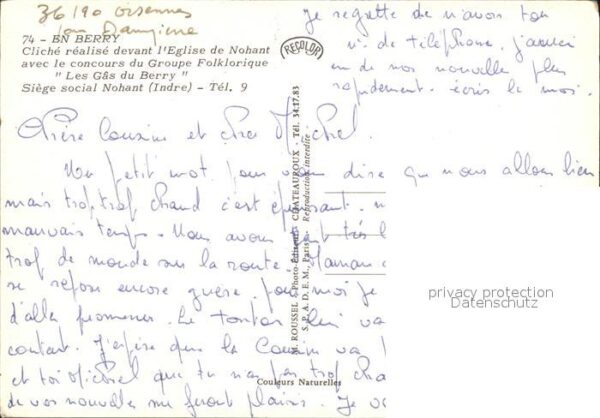 36190 Orsennes
74 - EN BERRY
Cliché réalisé devant l'Eglise de Nohant
avec le concours du Groupe Folklorique
" Les Gâs du Berry "
Siège social Nohant (Indre) - Tél. 9
RECOLOR
Je regrette de n'avoir ton
n. de téléphone, j'aurai
eu de nos nouvelle plus
rapidement. écris le moi.
Chère Cousine et cher Michel
Un petit mot pour vous dire que nous allons bien
mais trop trop chaud c'est
mauvais temps. Nous avons très
trop de monde sur la route. Maman
se repose encore guère, pour moi je
d'aller promener. Le tonton lui va
content. J'espère que la Cousine va
et toi Michel que tu n'as pas trop cha
de vos nouvelles me feront plaisir. Je
M. ROUSSEL - Photo-Editeur - CHATEAUROUX - Tél. 34.17.83
S.P.A.D.E.M., Paris - Reproduction interdite
Couleurs Naturelles
privacy protection
Datenschutz